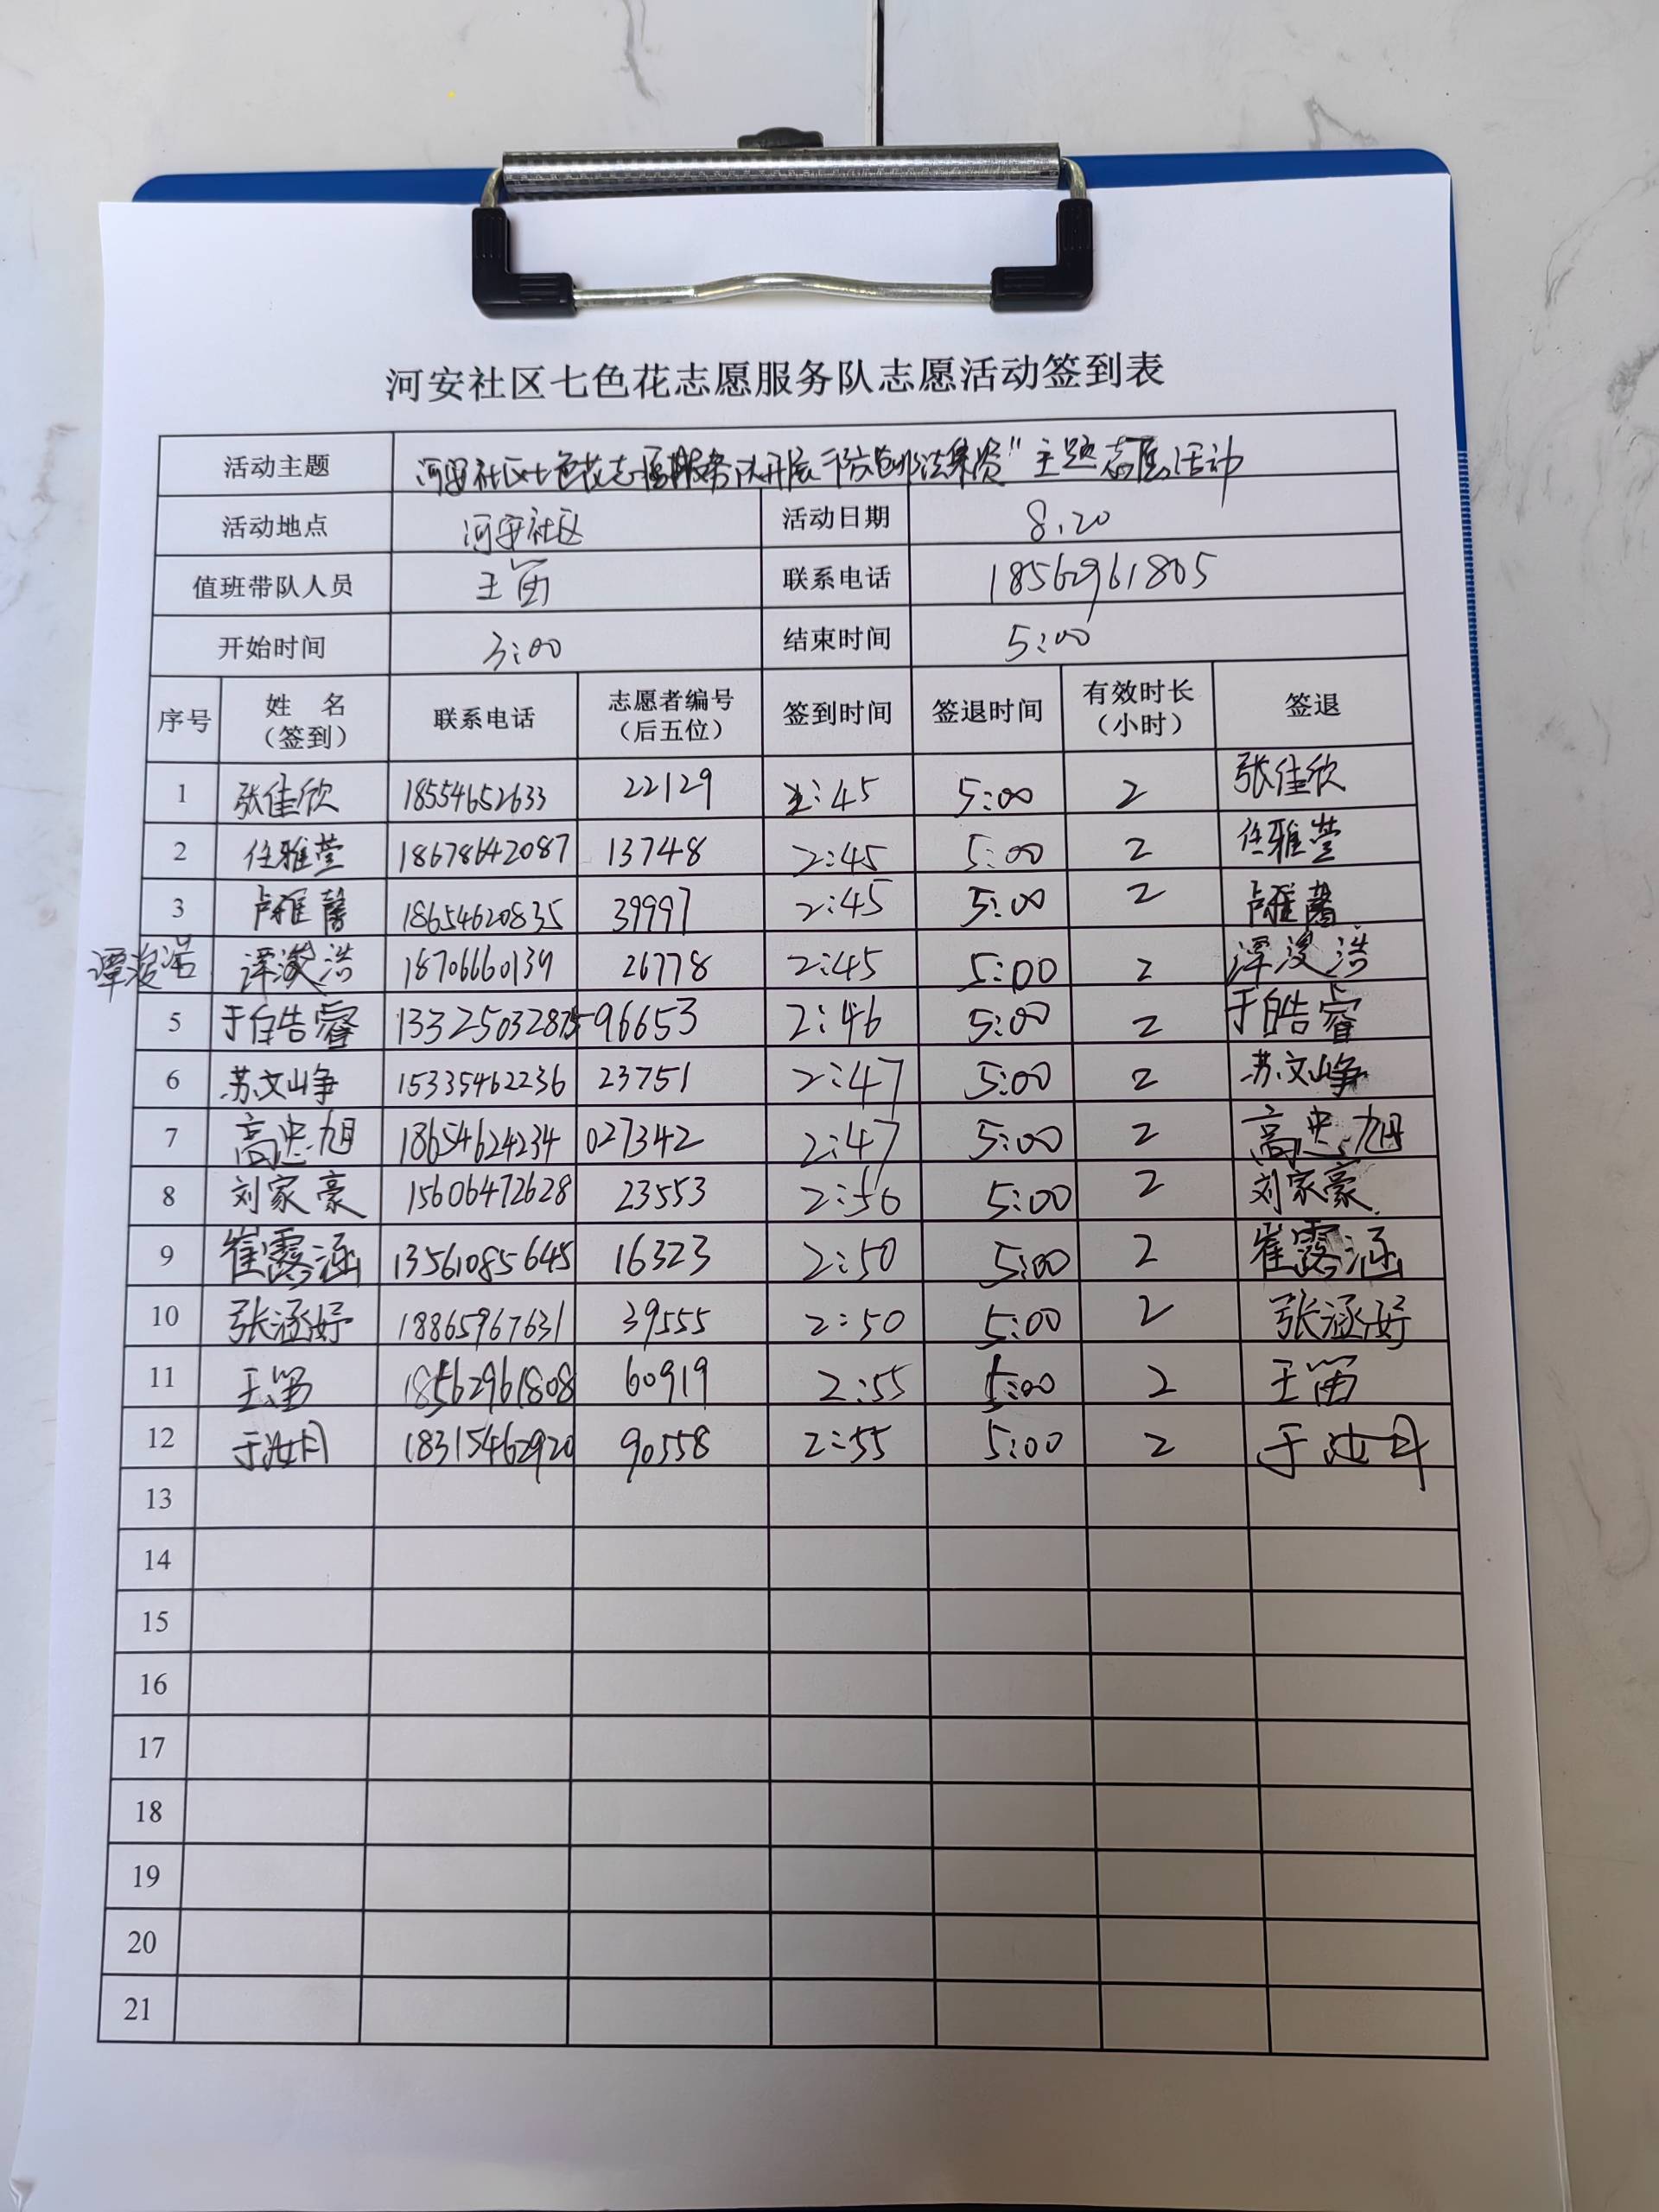 河安社区七色花志愿服务队志愿活动签到表
活动主题 河安社区七色花志愿服务队开展"防范非法集资"主题志愿活动
活动地点 河安社区 活动日期 8.20
值班带队人员 王笛 联系电话 18562961805
开始时间 3:00 结束时间 5:00
序号 姓 名（签到） 联系电话 志愿者编号（后五位） 签到时间 签退时间 有效时长（小时） 签退
1 张佳欣 18554652633 22129 2:45 5:00 2 张佳欣
2 任雅莹 18678642087 13748 2:45 5:00 2 任雅莹
3 卢雅馨 18654620835 39997 2:45 5:00 2 卢雅馨
谭浚浩 谭浚浩 18706660139 26778 2:45 5:00 2 谭浚浩
5 于皓睿 96653 2:46 5:00 2 于皓睿
6 苏文峥 15335462236 23751 2:47 5:00 2 苏文峥
7 高忠旭 18654624234 027342 2:47 5:00 2 高忠旭
8 刘家豪 15606472628 23553 2:50 5:00 2 刘家豪
9 崔露涵 13561085645 16323 2:50 5:00 2 崔露涵
10 张涵妤 18865967631 39555 2:50 5:00 2 张涵妤
11 王笛 18562961808 60919 2:55 5:00 2 王笛
12 于汝月 18315462920 90558 2:55 5:00 2 于汝月
13
14
15
16
17
18
19
20
21